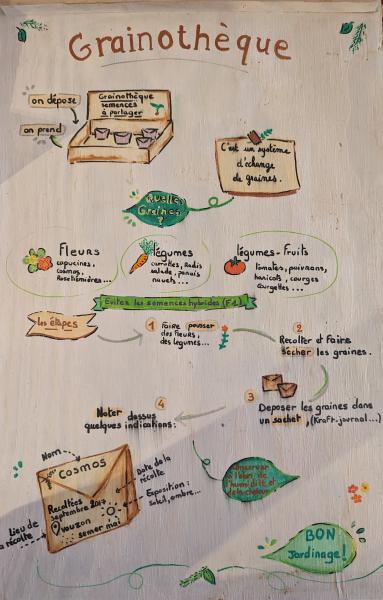 Grainothèque
on dépose
on prend
Grainothèque
semences
à partager
C'est un système
d'échange
de graines.
Quelles
Graines
?
Fleurs
capucines,
cosmos,
Rose trémières...
légumes
carottes, Radis
salade, panais
navets...
légumes-Fruits
Tomates, poivrons,
haricots, courges
courgettes...
Evitez les semences hybrides (F1)
les étapes
1 Faire pousser
des fleurs,
des légumes...
2
Récolter et Faire
sécher les graines.
3
Deposer les graines dans
un sachet, (Kraft-journal...)
4
Noter dessus
quelques indications:
Nom
Cosmos
Date de la
récolte
Récoltées
septembre 2017
Vouzon
semer mai
Exposition:
soleil, ombre...
Lieu de
la récolte
Conserver
à l'abri de
l'humidité et
de la chaleur
BON
Jardinage!